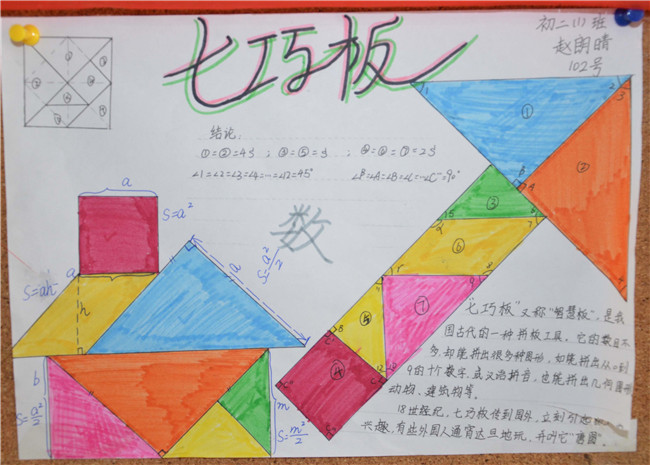 七巧板
初二(1)班
赵雨晴
102号
结论:
①=②=4S ; ③=⑤=S ; ④=⑥=⑦=2S
∠1=∠2=∠3=∠4=…=∠12=45°
数
a
S=a²
a
S=ah
h
a
S=a²/2
b
S=a²/2
m
S=m²/2
①
②
③
⑥
⑦
⑤
④
"七巧板"又称"智慧板",是我
国古代的一种拼板工具,它的数目不
多,却能拼出很多种图形,如能拼出从0到
9的十个数字,或汉语拼音,也能拼出几何图形
动物、建筑物等。
18世纪,七巧板传到国外,立刻引起
兴趣,有些外国人通宵达旦地玩,并叫它"唐图"。